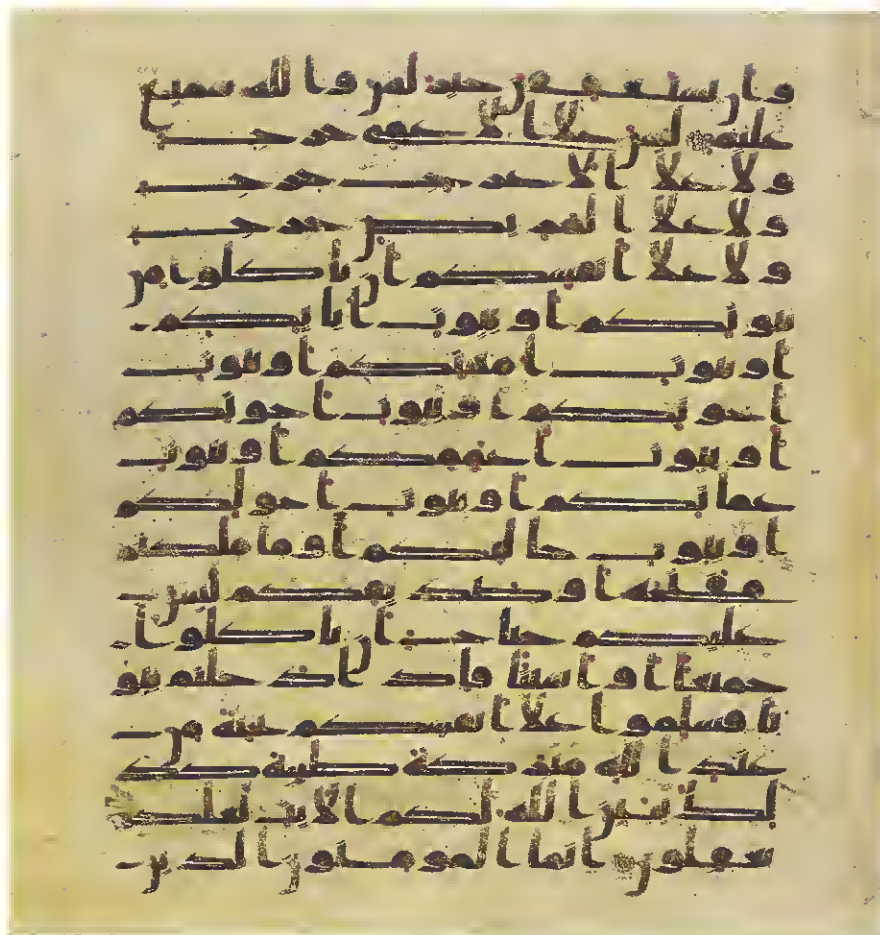 وان يستعففن خير لهن والله سميع
عليم ليس علا الاعمى حرج
ولا علا الاعرج حرج
ولا علا المريض حرج
ولا علا انفسكم ان تاكلوا من
بيوتكم او بيوت ابايكم
او بيوت امهتكم او بيوت
اخونكم او بيوت اخوتكم
او بيوت اعممكم او بيوت
عماتكم او بيوت اخولكم
او بيوت خالتكم او ما ملكتم
مفتحه او صديقكم ليس
عليكم جناح ان تاكلوا
جميعا او اشتاتا فاذا دخلتم بيو
تا فسلموا علا انفسكم تحية من
عند الله مبركة طيبة كذ
لك يبين الله لكم الايت لعلكم
تعقلون انما المومنون الذين